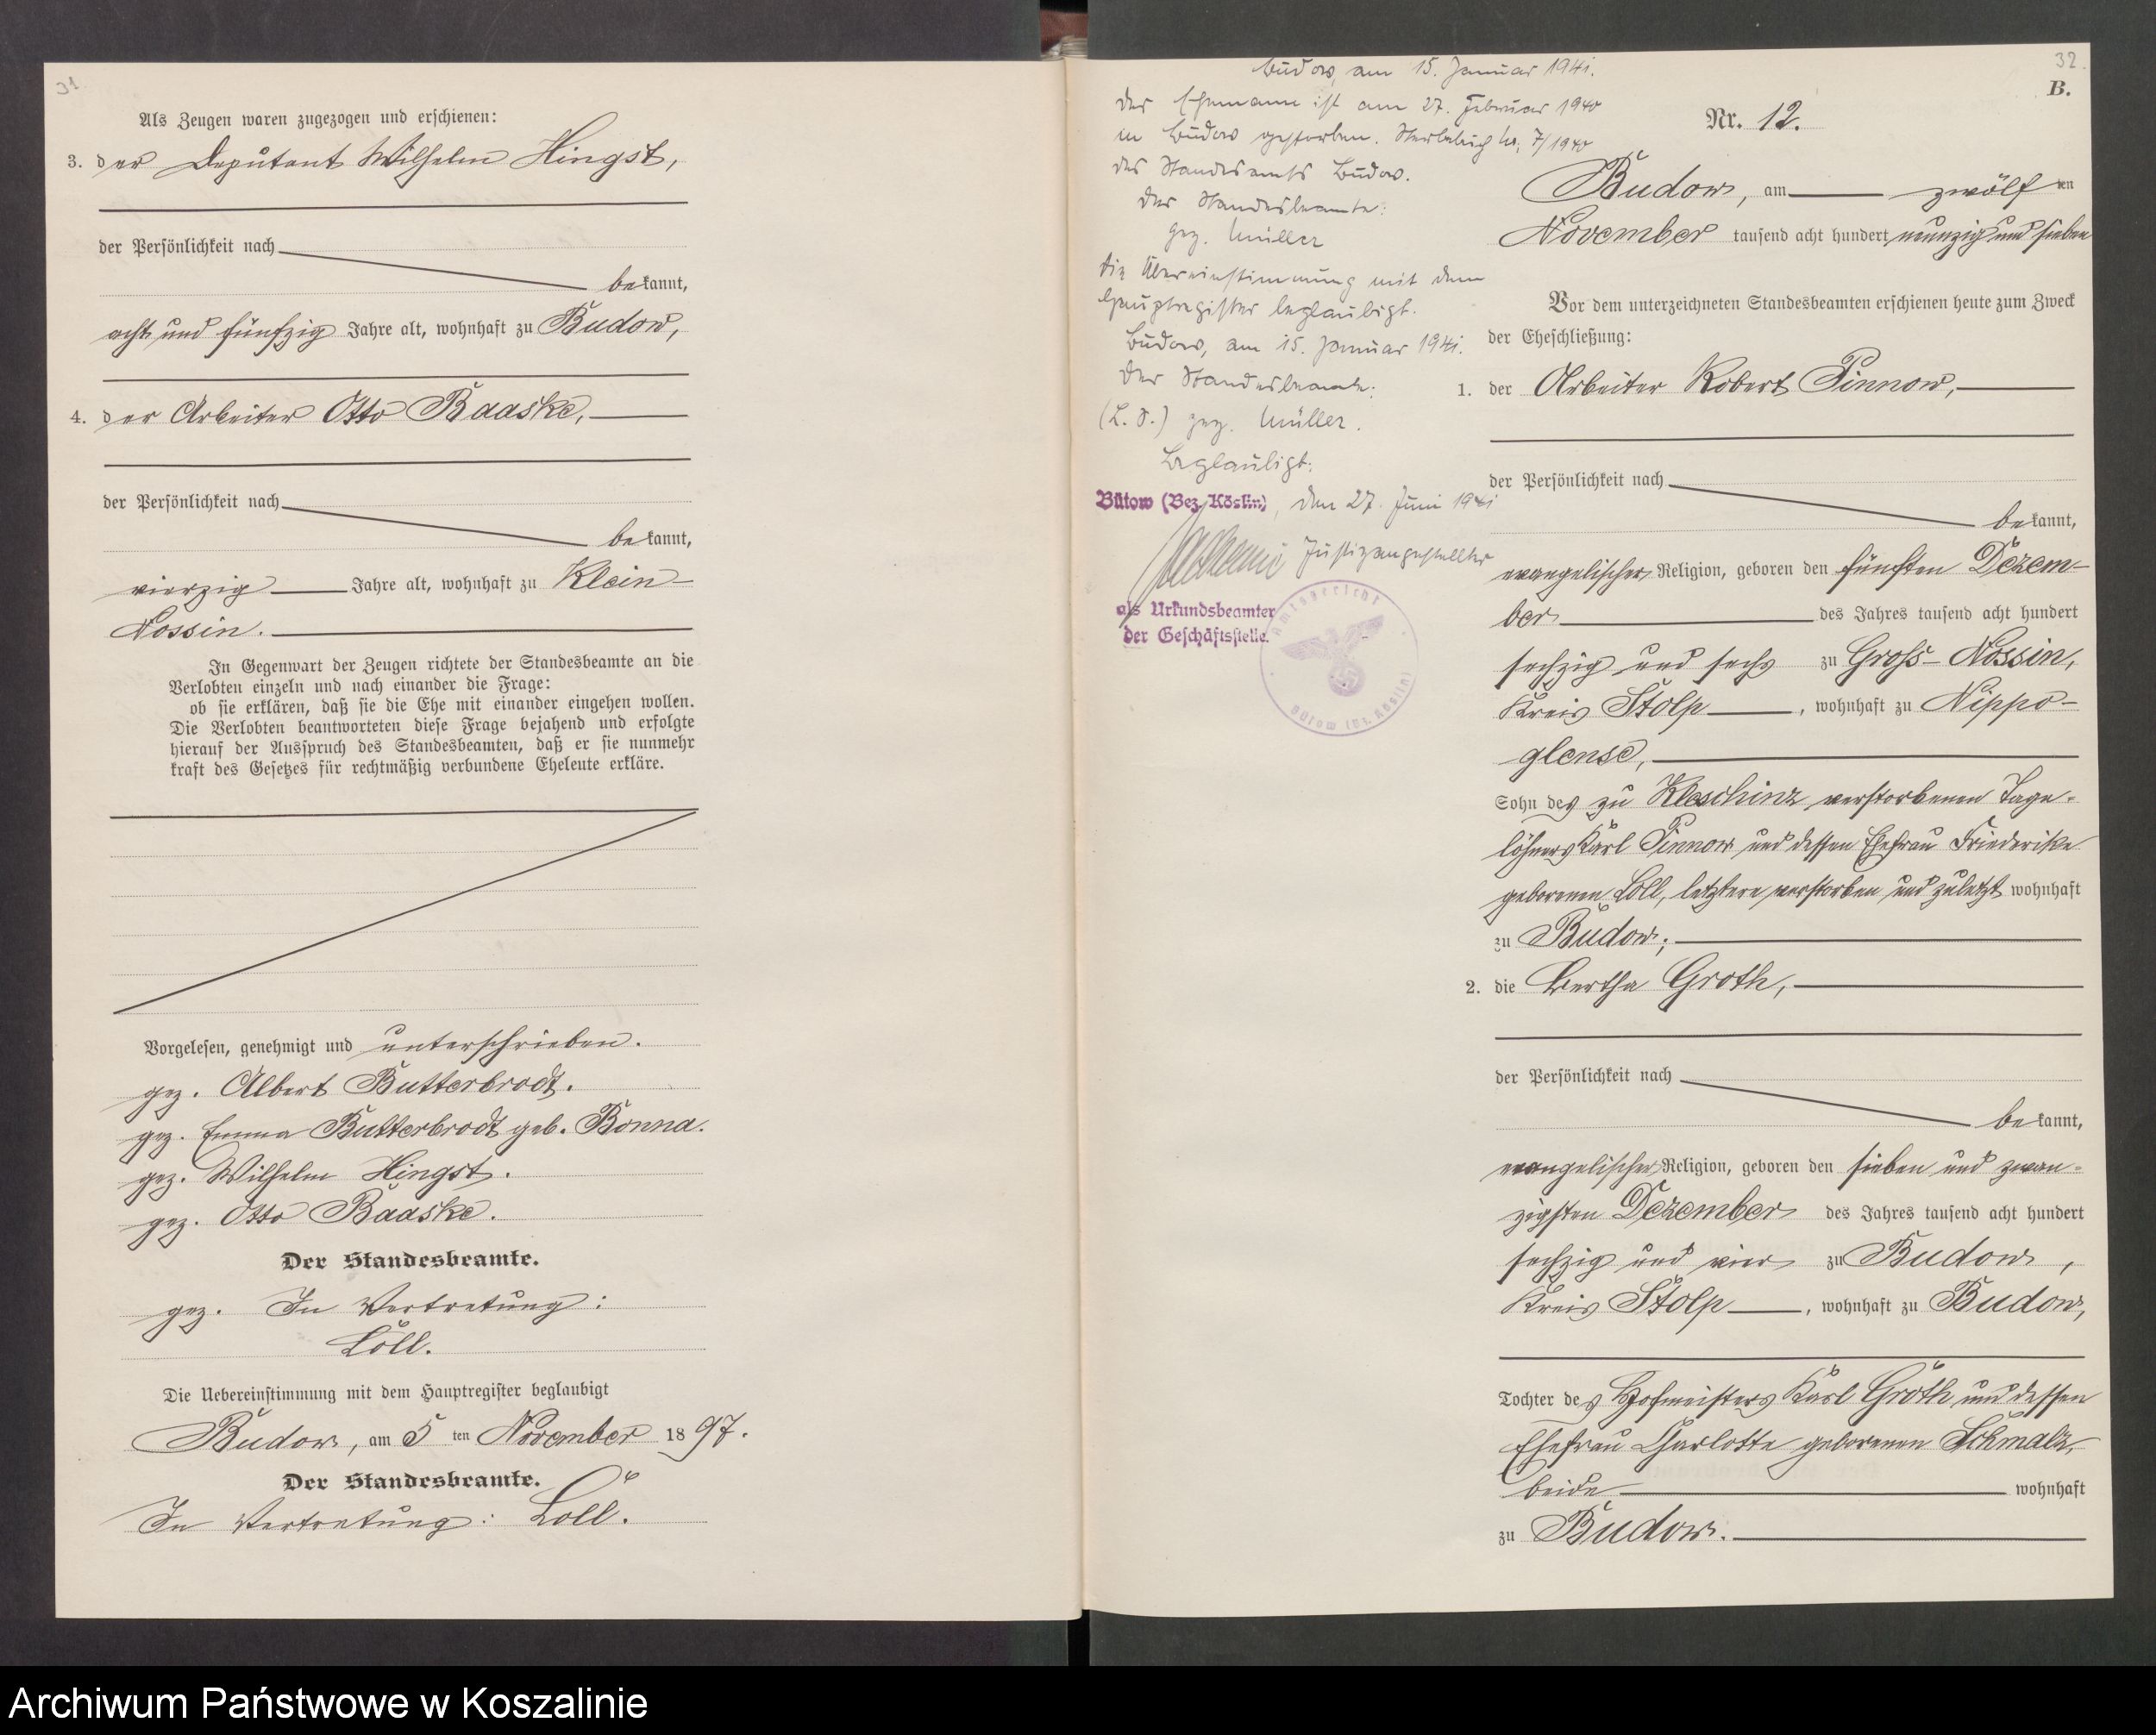 31.
Als Zeugen waren zugezogen und erschienen:
3. der Deputant Wilhelm Hingst,
der Persönlichkeit nach
bekannt,
acht und fünfzig Jahre alt, wohnhaft zu Budow,
4. der Arbeiter Otto Baaske,
der Persönlichkeit nach
bekannt,
vierzig Jahre alt, wohnhaft zu Klein-
Nossin.
In Gegenwart der Zeugen richtete der Standesbeamte an die
Verlobten einzeln und nach einander die Frage:
ob sie erklären, daß sie die Ehe mit einander eingehen wollen.
Die Verlobten beantworteten diese Frage bejahend und erfolgte
hierauf der Ausspruch des Standesbeamten, daß er sie nunmehr
kraft des Gesetzes für rechtmäßig verbundene Eheleute erkläre.
Vorgelesen, genehmigt und unterschrieben.
gez. Albert Butterbrodt.
gez. Emma Butterbrodt geb. Bonna.
gez. Wilhelm Hingst.
gez. Otto Baaske.
Der Standesbeamte.
gez. In Vertretung:
Löll.
Die Uebereinstimmung mit dem Hauptregister beglaubigt
Budow, am 5 ten November 1897.
Der Standesbeamte.
In Vertretung: Löll.
32.
B.
Budow, am 15. Januar 1941.
Der Ehemann ist am 27. Februar 1940
in Budow gestorben. Sterbebuch No. 7/1940
des Standesamts Budow.
Der Standesbeamte:
gez. Müller
Die Übereinstimmung mit dem
Hauptregister beglaubigt.
Budow, am 15. Januar 1941.
Der Standesbeamte:
(L.S.) gez. Müller.
Beglaubigt:
Bütow (Bez. Köslin), den 27. Juni 1941
Justizangestellter
als Urkundsbeamter
der Geschäftsstelle.
Amtsgericht
Bütow (Bz. Köslin)
Nr. 12.
Budow, am zwölf ten
November tausend acht hundert neunzig und sieben
Vor dem unterzeichneten Standesbeamten erschienen heute zum Zweck
der Eheschließung:
1. der Arbeiter Robert Pinnow,
der Persönlichkeit nach
bekannt,
evangelischer Religion, geboren den fünften Dezem-
ber des Jahres tausend acht hundert
sechzig und sechs zu Groß-Nossin,
Kreis Stolp, wohnhaft zu Nippo-
glense,
Sohn des zu Kleschinz verstorbenen Tage-
löhners Karl Pinnow und dessen Ehefrau Friederike
geborenen Löll, letztere verstorben und zuletzt wohnhaft
zu Budow;
2. die Bertha Groth,
der Persönlichkeit nach
bekannt,
evangelischer Religion, geboren den sieben und zwan-
zigsten Dezember des Jahres tausend acht hundert
sechzig und vier zu Budow,
Kreis Stolp, wohnhaft zu Budow,
Tochter des Hofmeisters Karl Groth und dessen
Ehefrau Charlotte geborenen Schmalz,
beide wohnhaft
zu Budow.
Archiwum Państwowe w Koszalinie